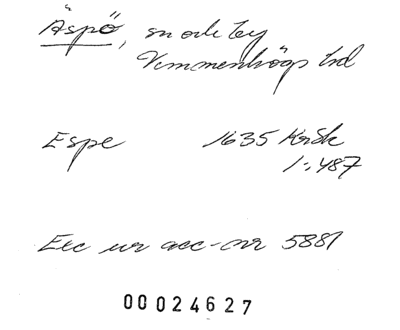 Äspö, sn och by
Vemmenhögs hd
Espe 1635 KrSk
1:487
Exc ur acc-nr 5881
00024627